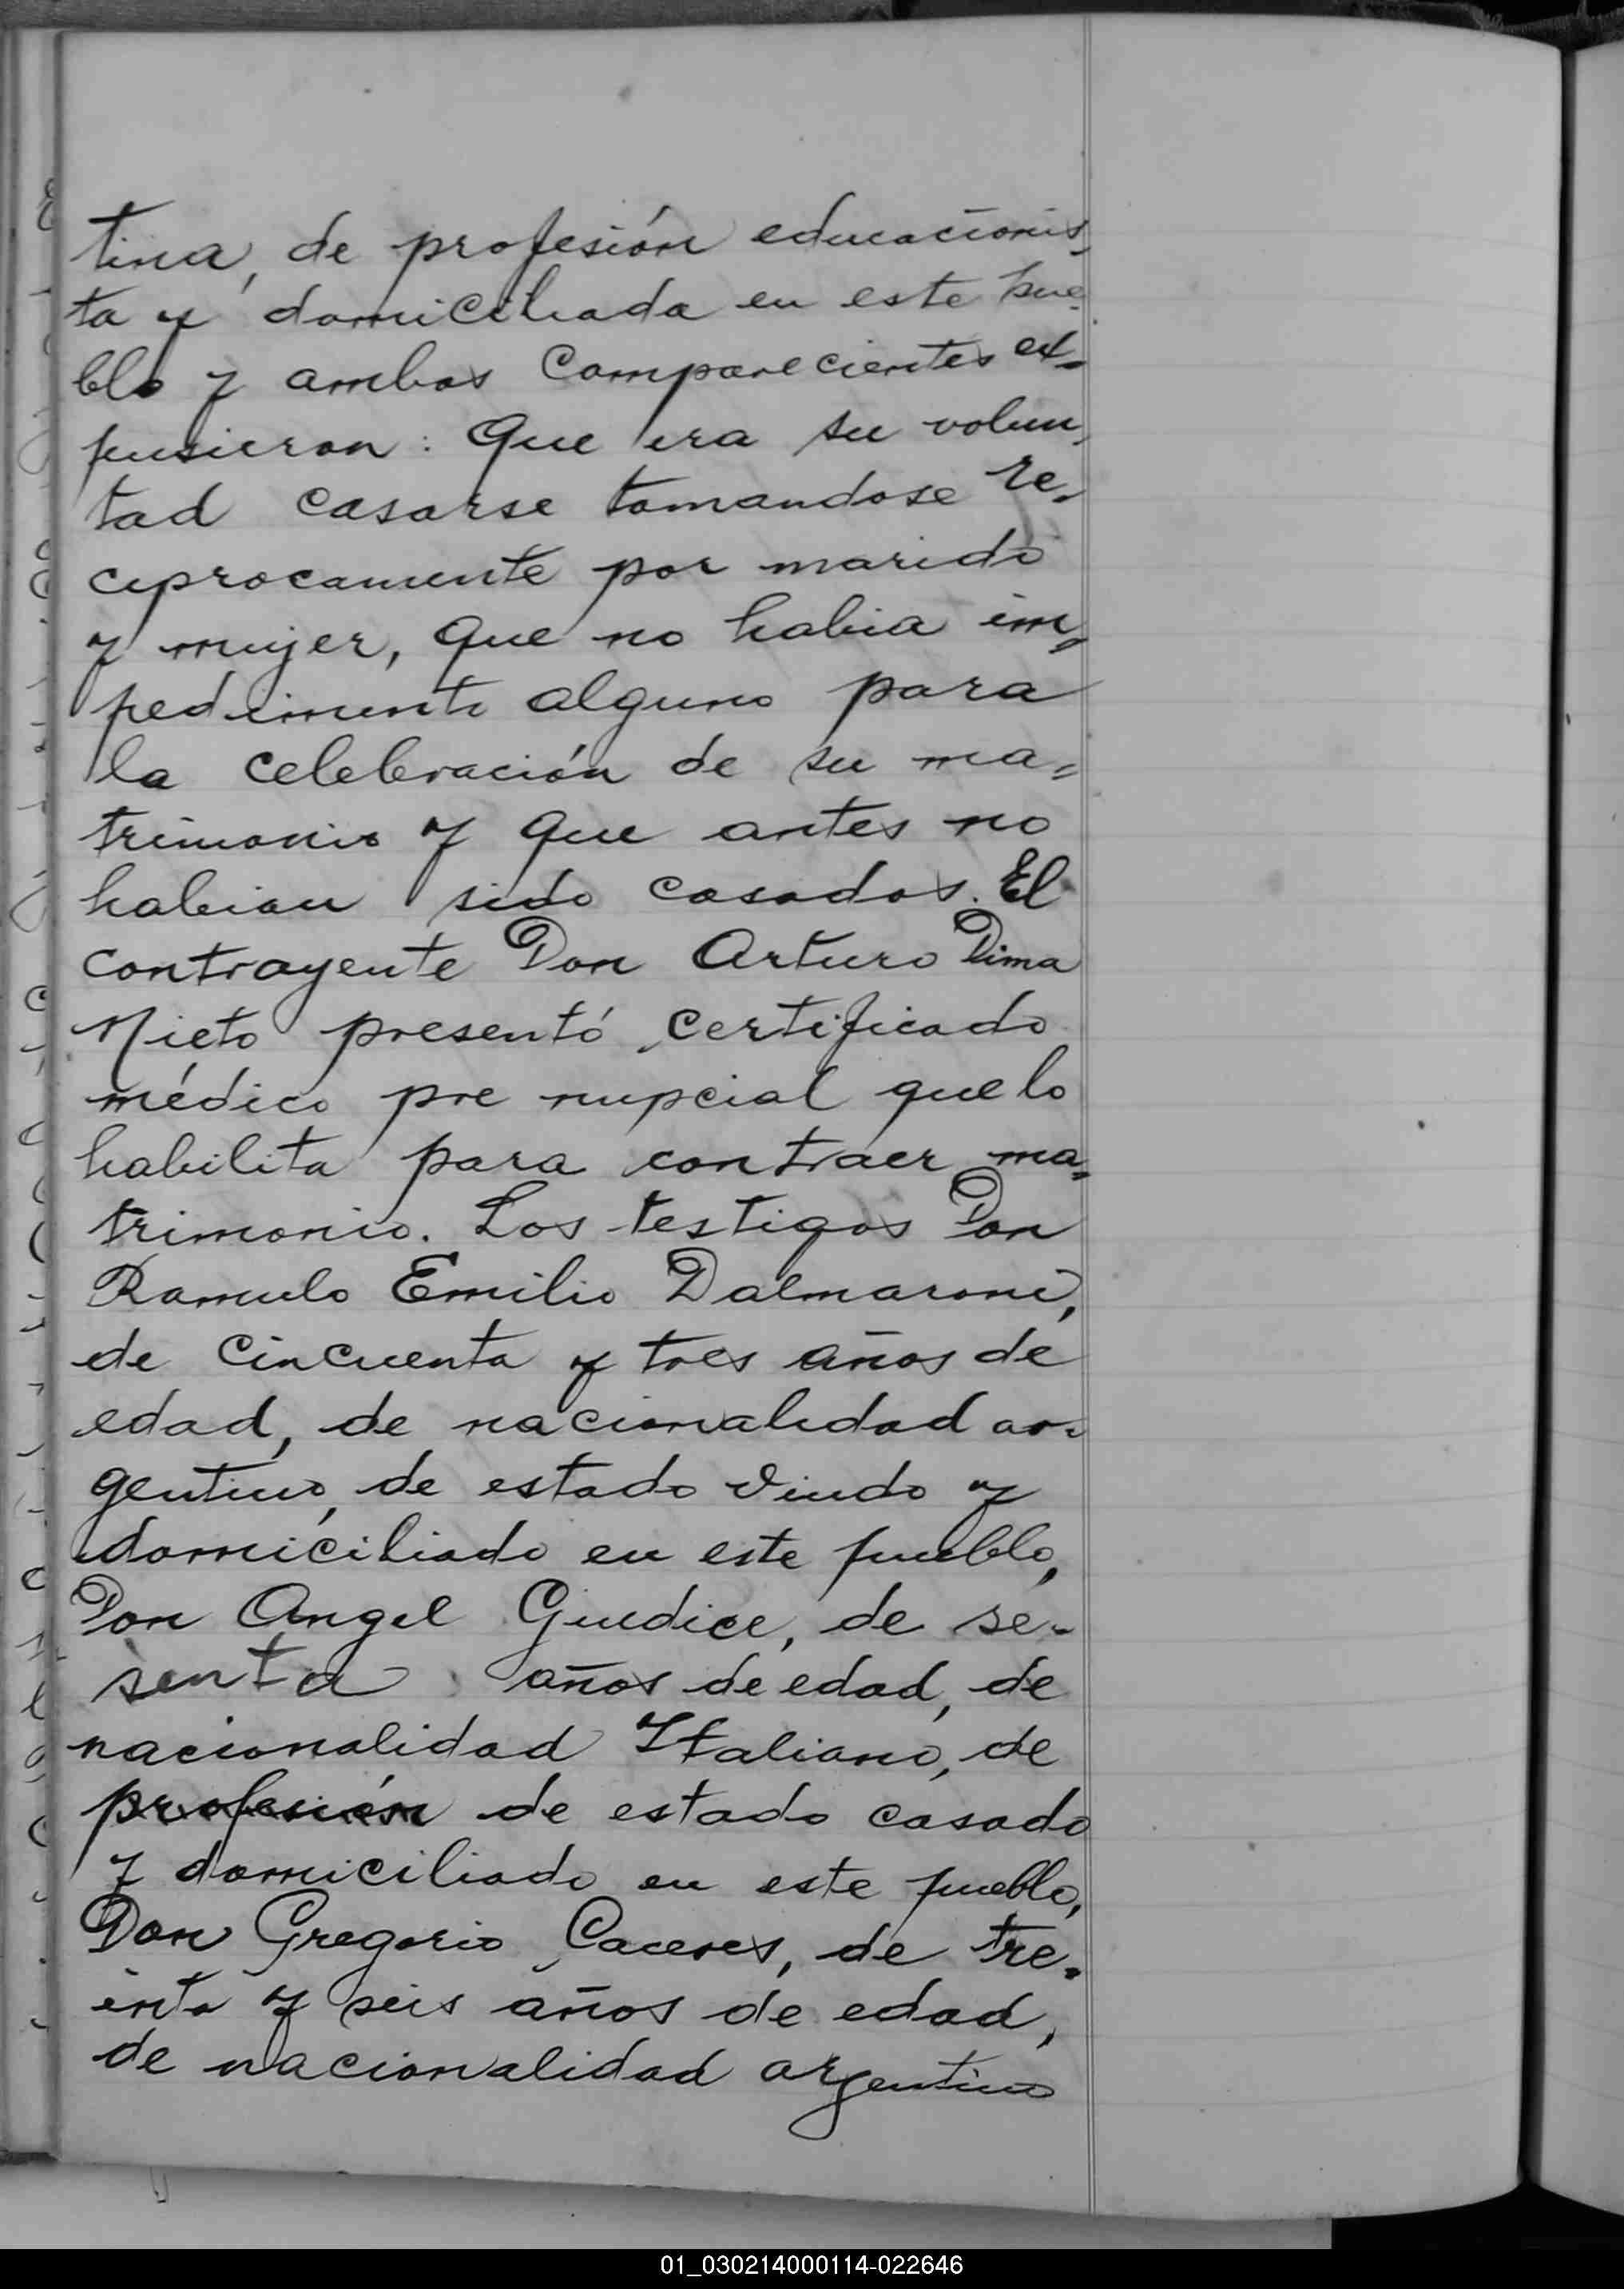 tina, de profesión educacionis,
ta y domiciliada en este pue
blo y ambos comparecientes ex=
pusieron: Que era su volun,
tad casarse tomandose re,
ciprocamente por marido
y mujer, que no habia im,
pedimento alguno para
la celebración de su ma=
trimonio y que antes no
habian sido casados. El
contrayente Don Arturo Dima
Nieto presentó certificado
médico pre nupcial que lo
habilita para contraer ma=
trimonio. Los testigos Don
Romulo Emilio Dalmaroni,
de cincuenta y tres años de
edad, de nacionalidad ar=
gentino, de estado viudo y
domiciliado en este pueblo,
Don Angel Giudice, de se-
senta años de edad, de
nacionalidad Italiano, de
profesión de estado casado
y domiciliado en este pueblo,
Don Gregorio Caceres, de tre=
inta y seis años de edad,
de nacionalidad argentino
01_030214000114-022646